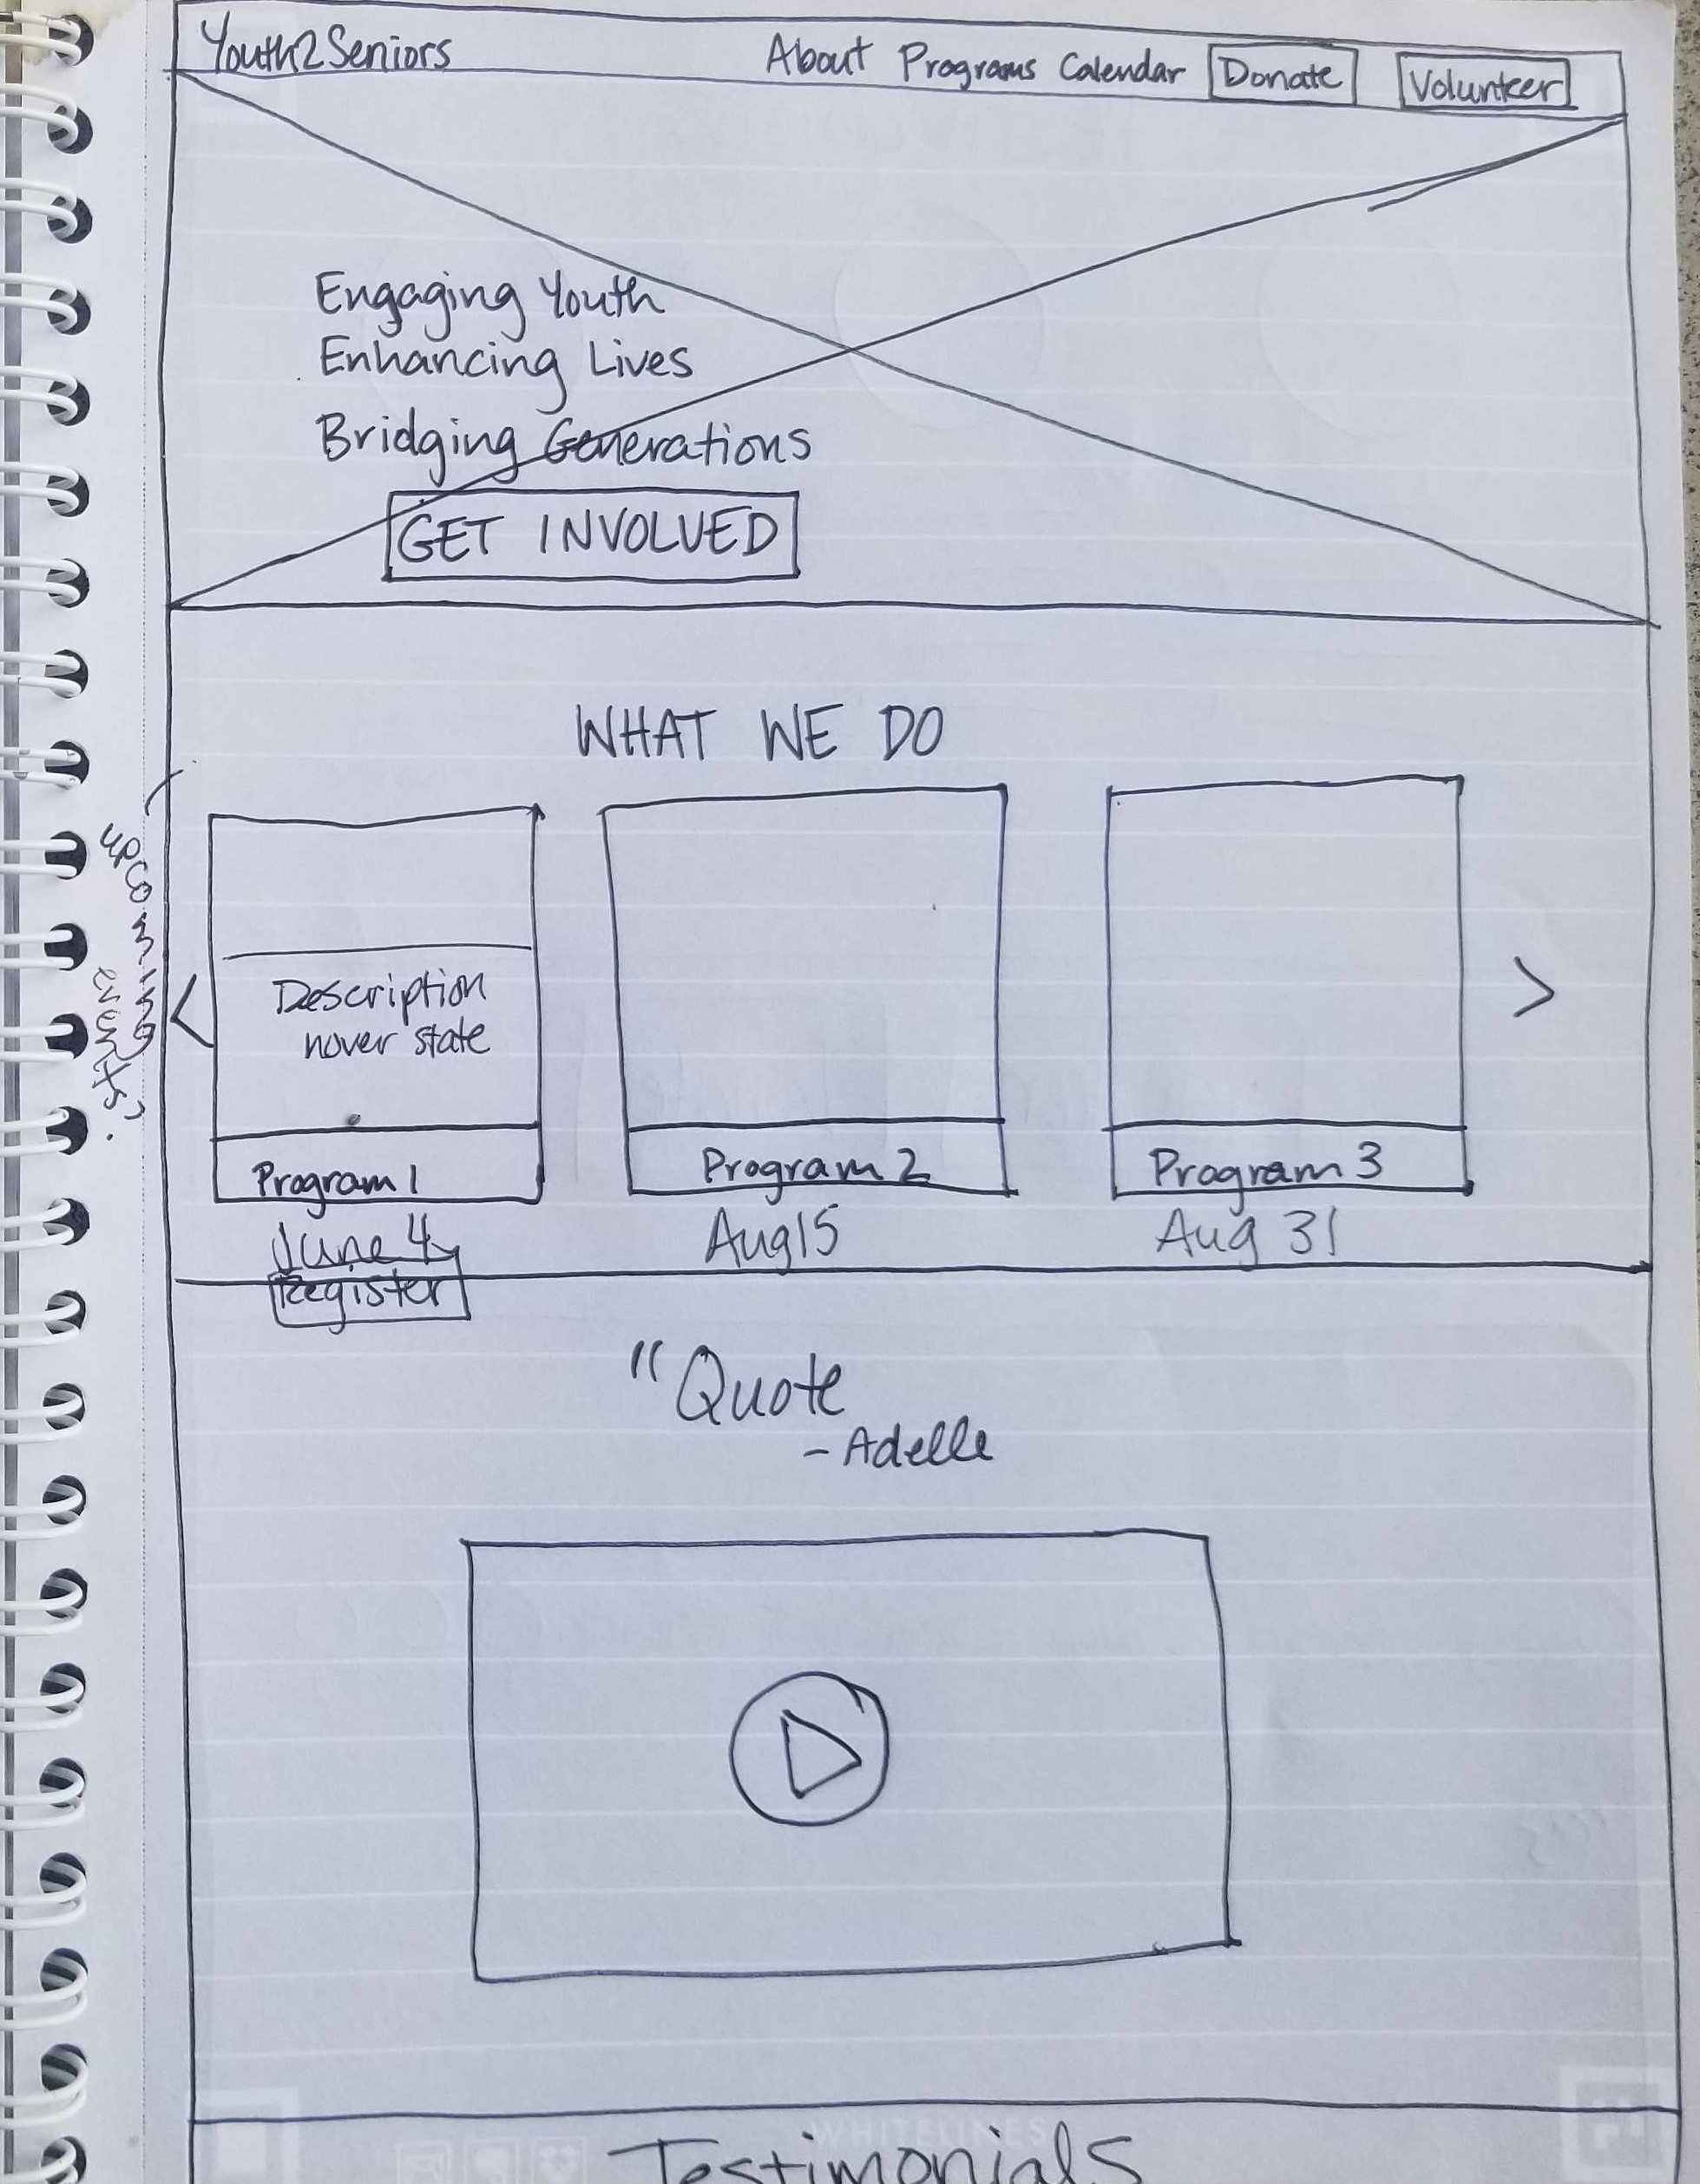 Youth2Seniors About Programs Calendar Donate Volunteer
Engaging Youth
Enhancing Lives
Bridging Generations
GET INVOLVED
WHAT WE DO
(upcoming
events?
<
Description
hover state
>
Program 1 Program 2 Program 3
June 4 Aug 15 Aug 31
Register
"Quote
- Adelle
WHITELINES
Testimonials